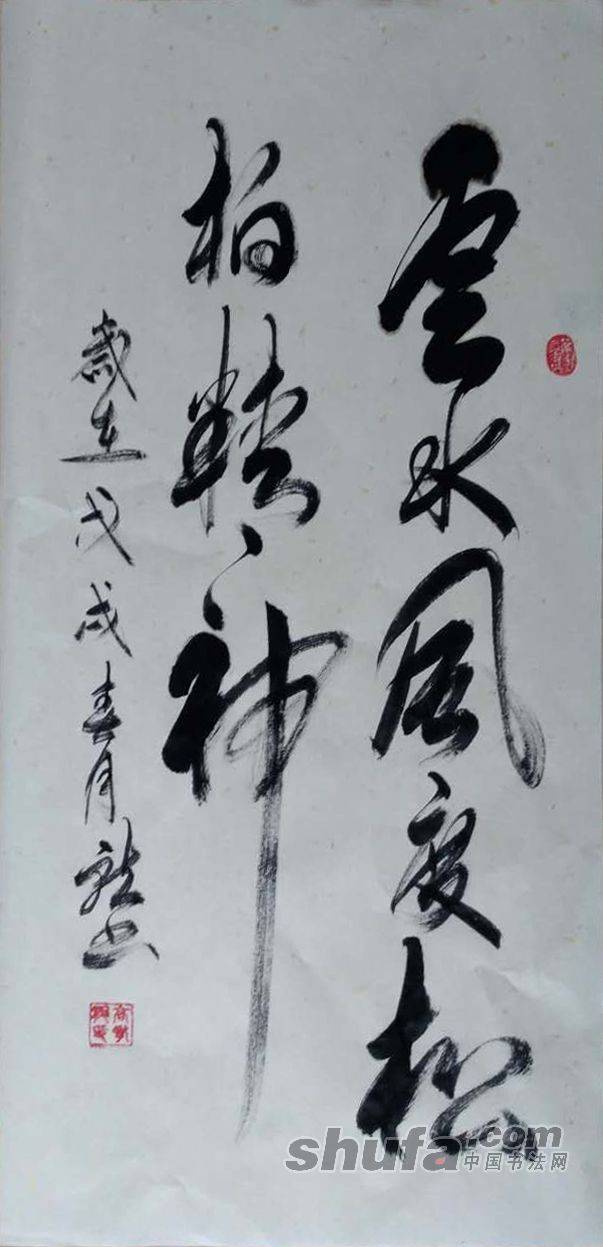 雲水風度松
柏精神
歲在戊戌春月
書
shufa.com
中国书法网